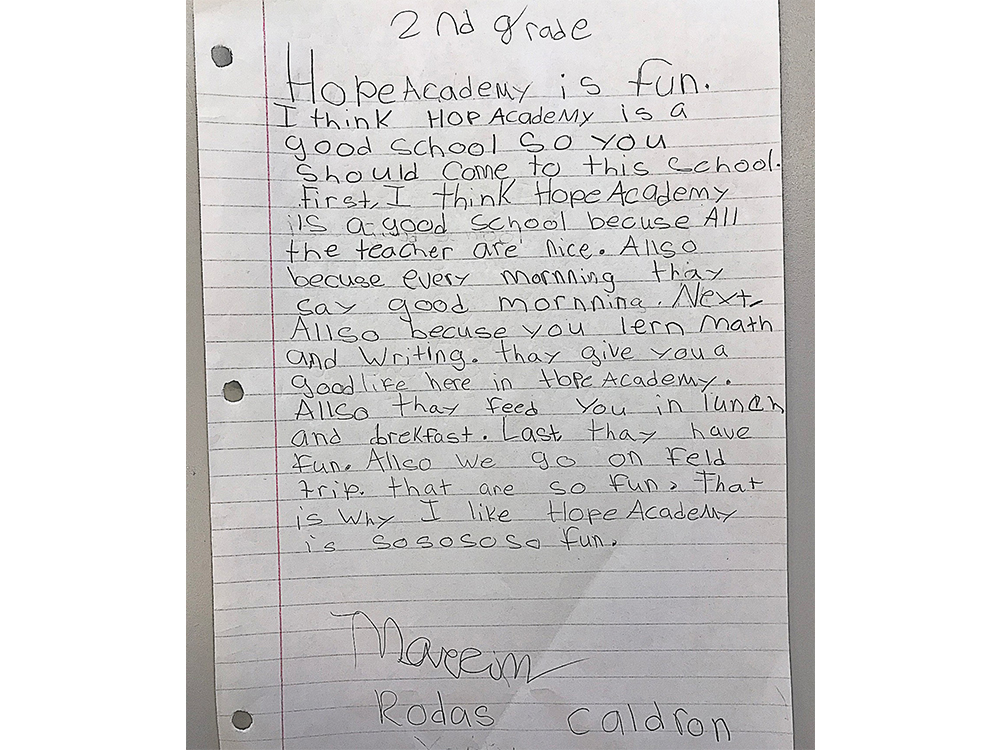 2nd grade
Hope Academy is fun.
I think Hop Academy is a
good school so you
should come to this school.
first, I think Hope Academy
is a good school becuse All
the teacher are nice. Allso
becuse every mornning thay
say good mornning. Next,
Allso becuse you lern math
and writing. thay give you a
good life here in Hope Academy.
Allso thay feed you in lunch
and brekfast. Last thay have
fun. Allso we go on feld
trip. that are so fun, That
is why I like Hope Academy
is sosososo fun.
Rodas Caldron